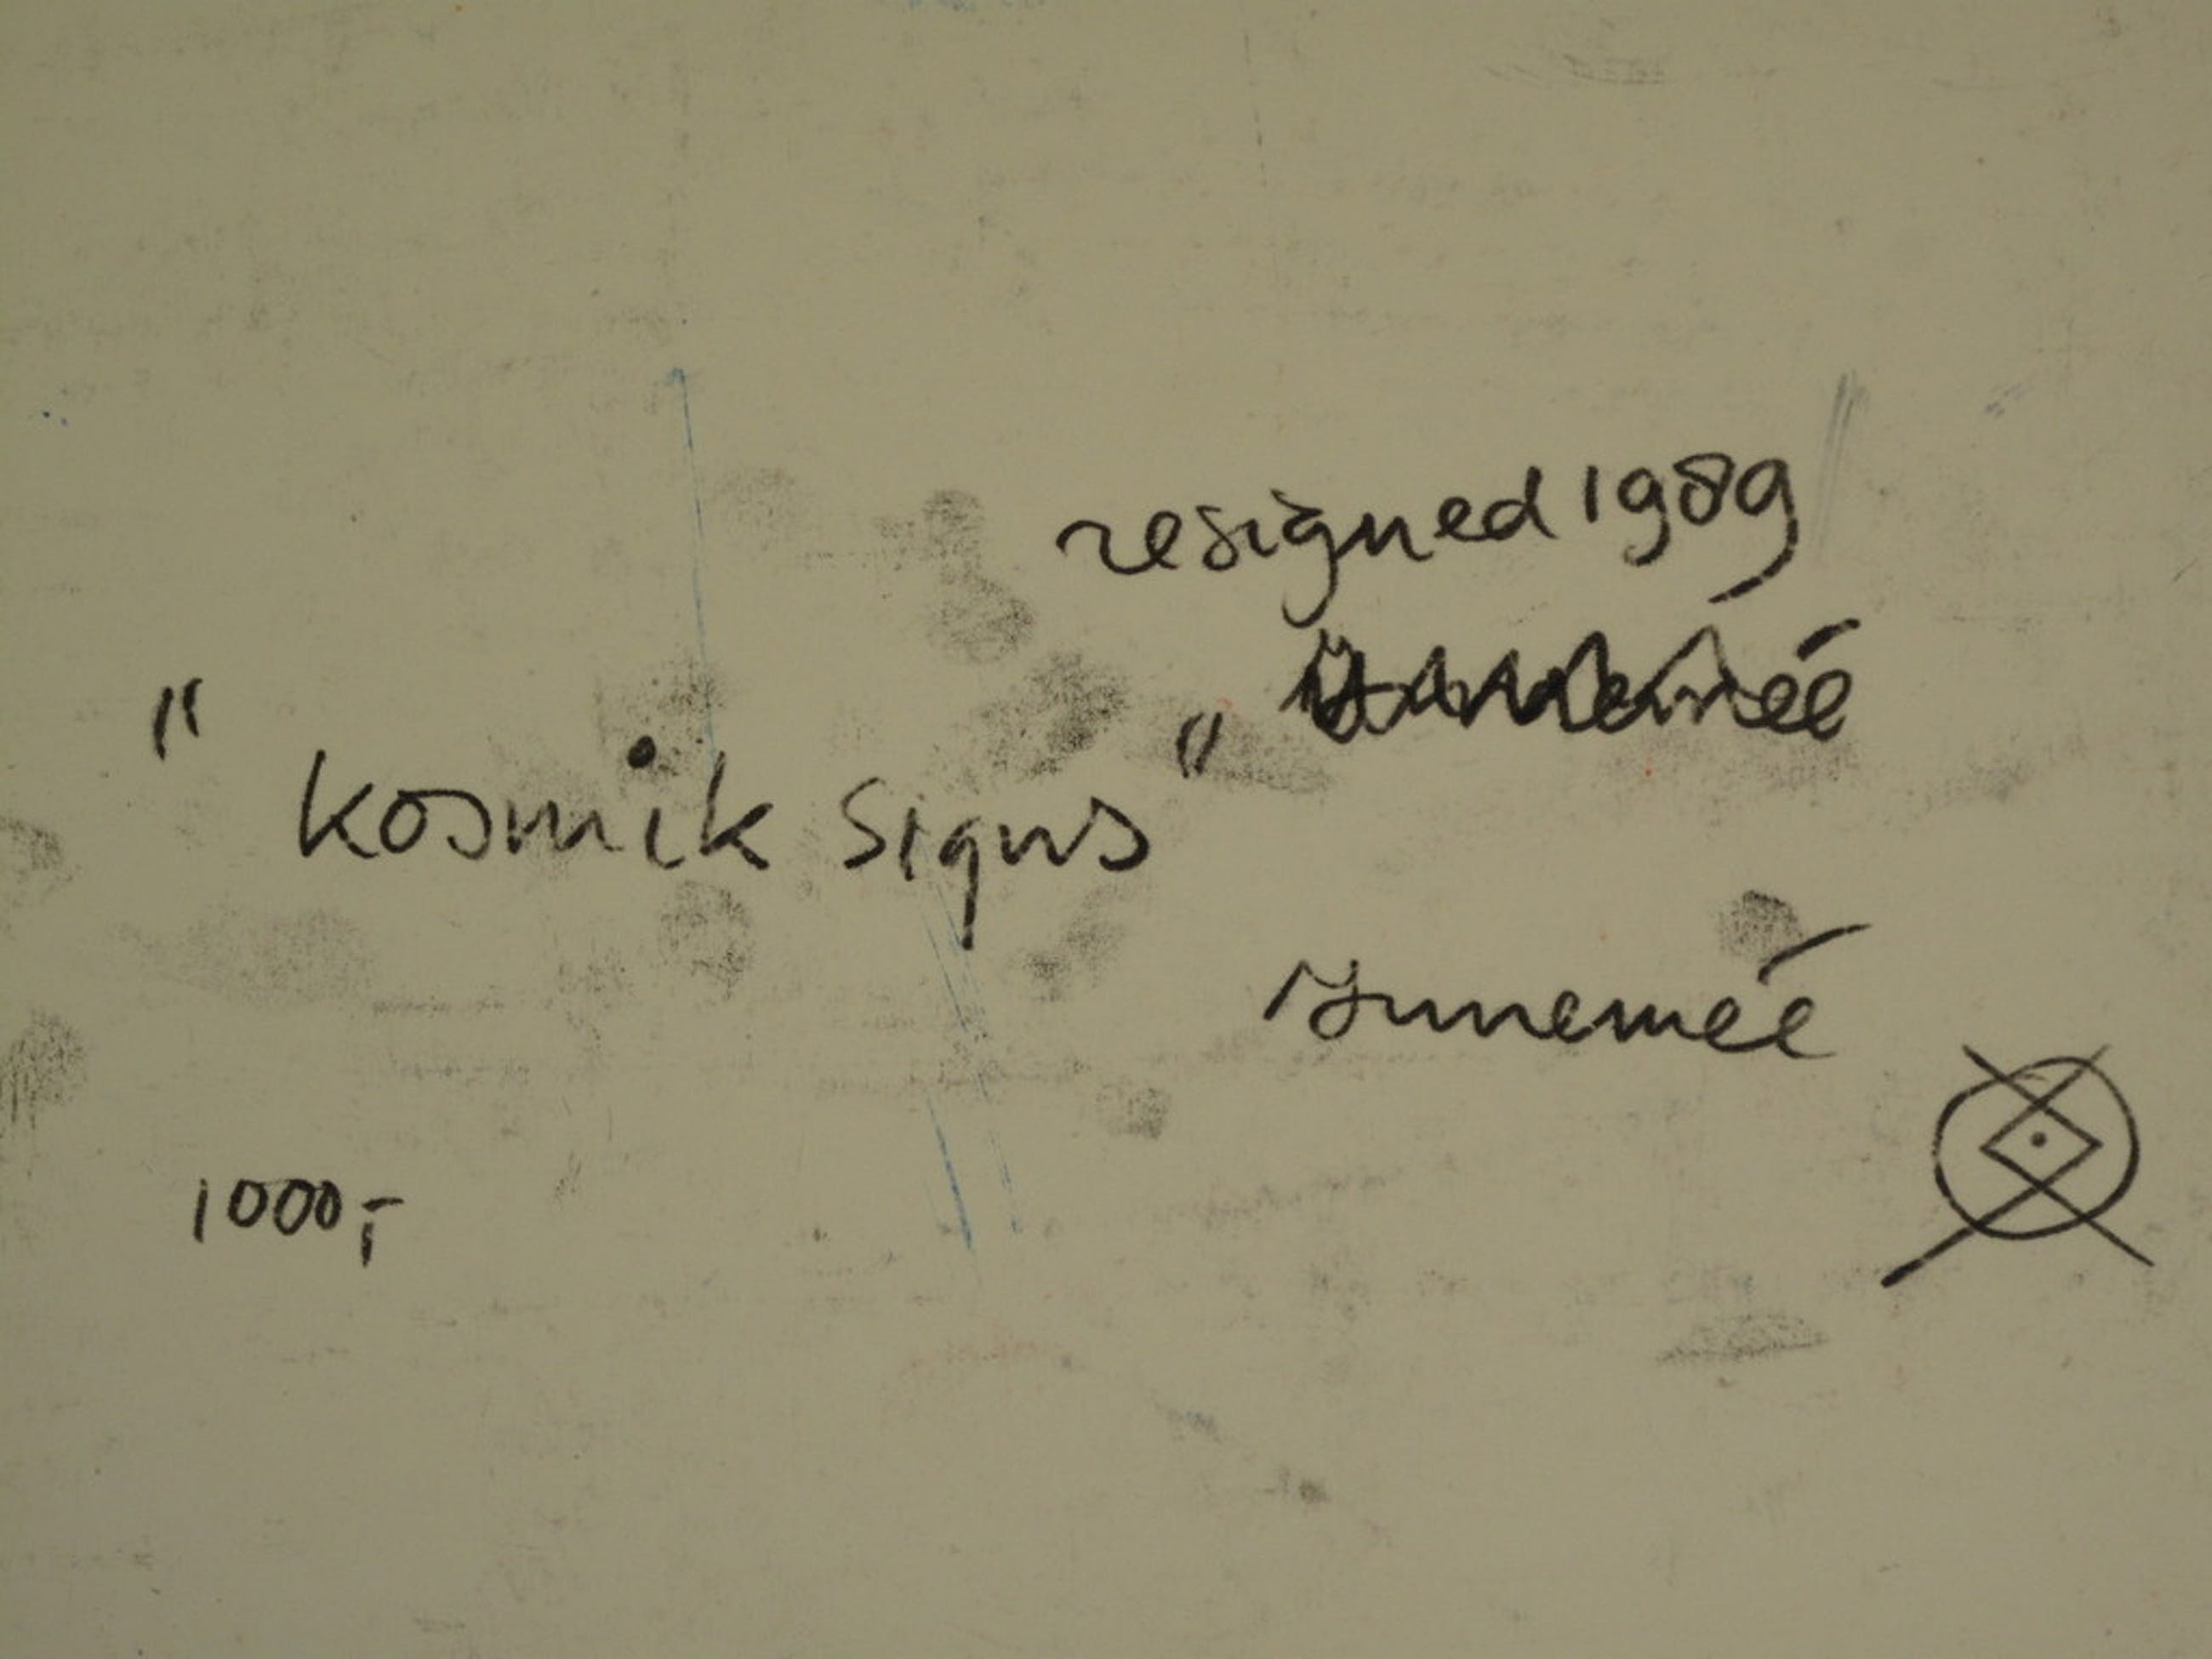 resigned 1989
"kosmik Signs"
Yunemeé
1000,-